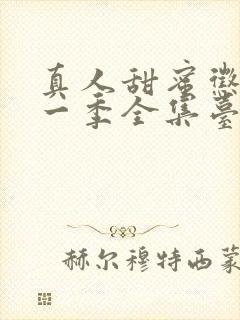 真人甜蜜懲
一季全集臺
赫尔穆特西蒙